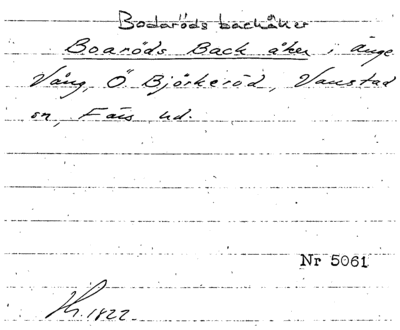 Bodaröds backåker
Boaröds Back åker i Änge
Vång, Ö Björkeröd, Vanstad
sn, Färs hd.
Nr 5061
1822